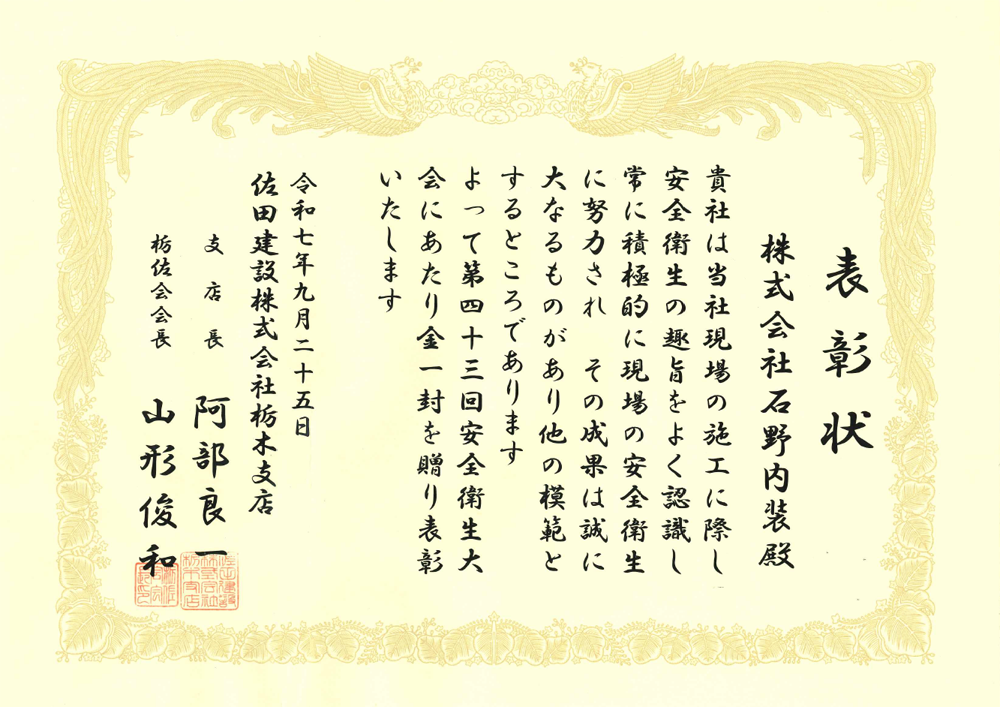 表彰状
株式会社石野内装殿
貴社は当社現場の施工に際し
安全衛生の趣旨をよく認識し
常に積極的に現場の安全衛生
に努力され その成果は誠に
大なるものがあり他の模範と
するところであります
よって第四十三回安全衛生大
会にあたり金一封を贈り表彰
いたします
令和七年九月二十五日
佐田建設株式会社栃木支店
支店長 阿部良一
栃佐会会長 山形俊和